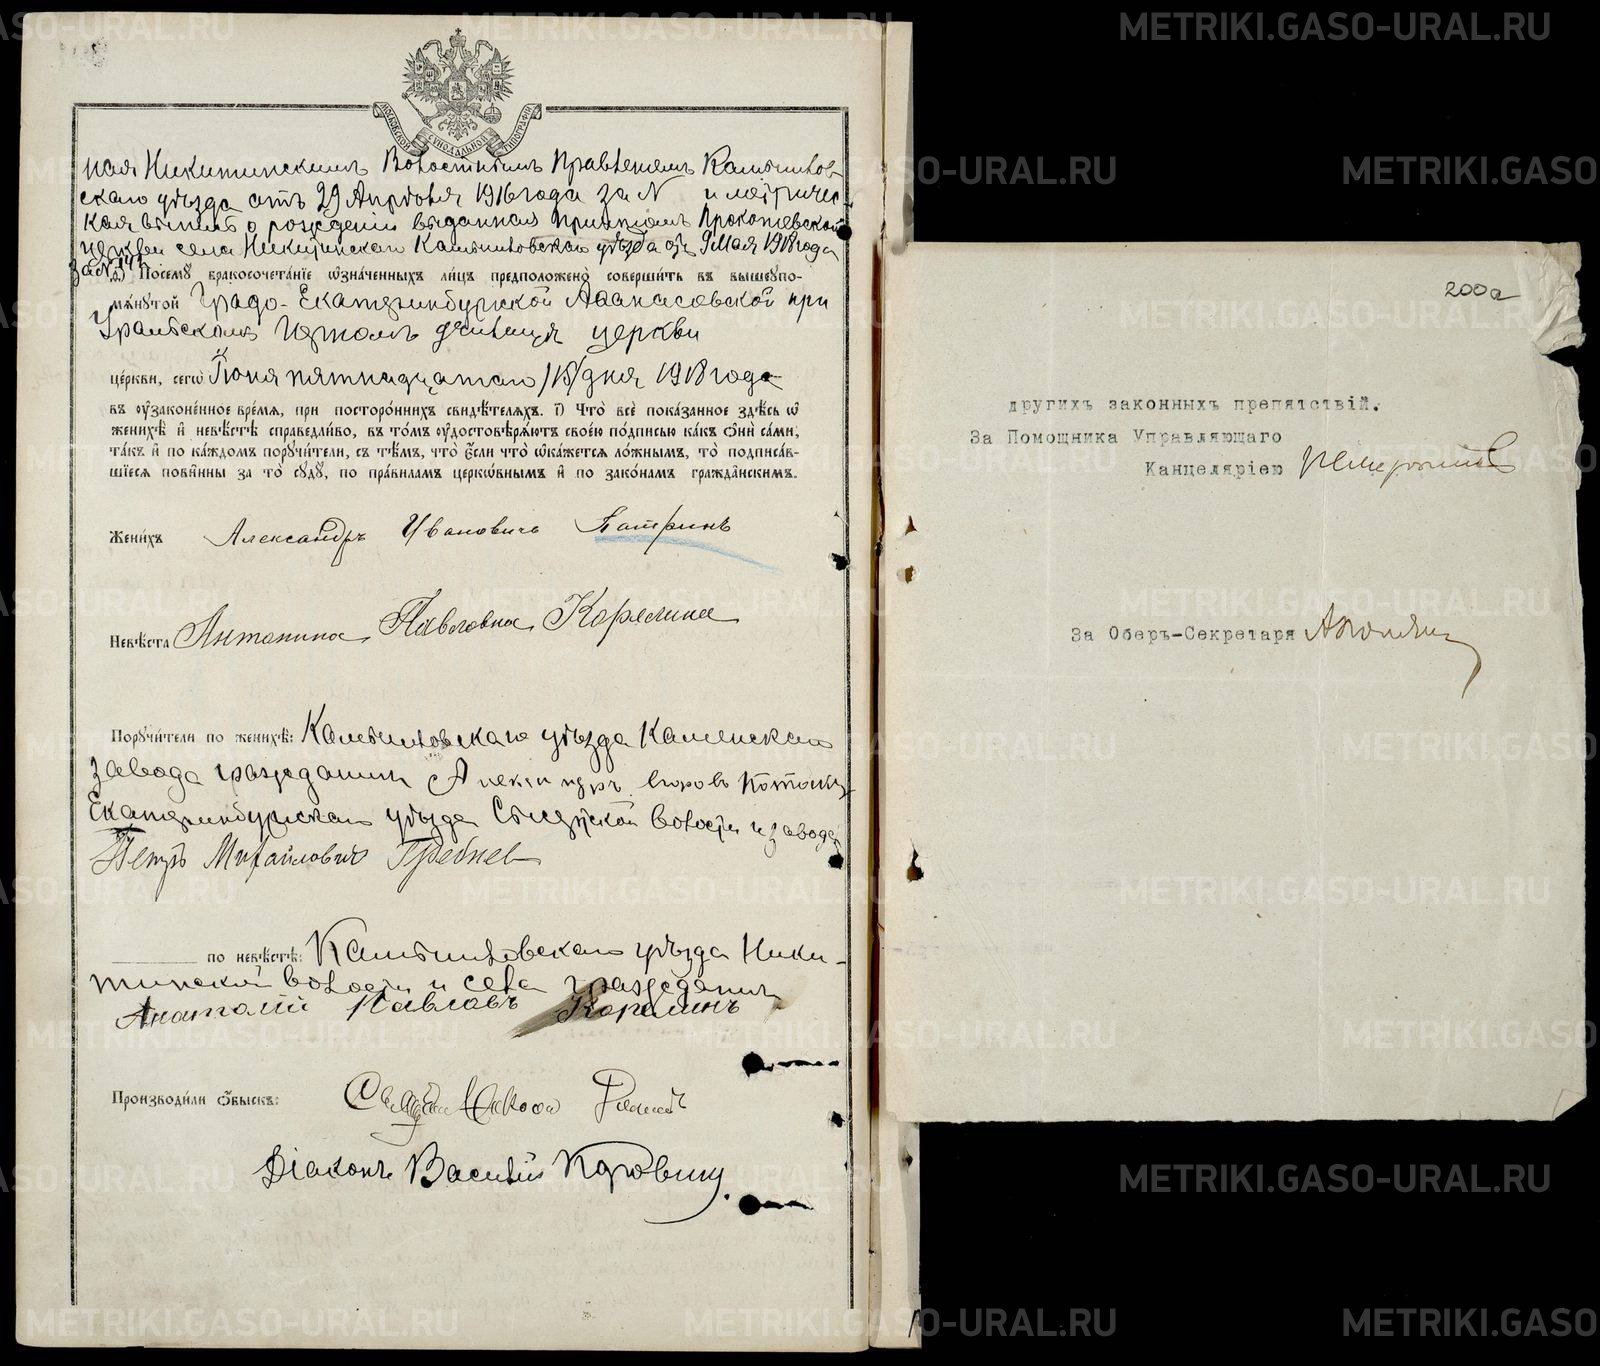 МОСКОВСКОЙ СѴНОДАЛЬНОЙ ТИПОГРАФІИ
ная Никитинскимъ Волостнымъ Правленіемъ Камышлов-
скаго уѣзда отъ 29 Апрѣля 1916 года за № и метричес-
кая выпись о рожденіи выданная причтомъ Прокопьевской
церкви села Никитинскаго Камышловскаго уѣзда отъ 9 Мая 1918 года
за №
Посемꙋ бракосочетанїе ѡзначенныхъ лицъ предположено совершить въ вышеꙋпо-
мѧнꙋтой Градо-Екатеринбургской Аѳанасьевской при
Уральскомъ Горномъ училищѣ церкви
церкви, сегѡ Іюня пятнадцатаго /15/ дня 1918 года
въ оузаконенное время, при постороннихъ свидѣтеляхъ. 7) Что все показанное здѣсь ѡ
женихѣ и невѣстѣ справедливо, въ томъ оудостовѣряютъ своею подписью какъ ѡни сами,
такъ и по каждомъ порꙋчители, съ тѣмъ, что если что ѡкажется ложнымъ, то подписав-
шїеся повинны за то сꙋдꙋ, по правиламъ церкѡвнымъ и по законамъ гражданскимъ.
Женихъ Александръ Ивановичъ Патринъ
Невѣста Антонина Павловна Карелина
Порꙋчители по женихѣ: Камышловскаго уѣзда Каменскаго
завода гражданинъ Александръ
Екатеринбургскаго уѣзда Сысертской волости и завода
Петръ Михайловичъ Гребнев
по невѣстѣ: Камышловскаго уѣзда Ники-
тинской волости и села гражданинъ
Анатолій Павловъ Карелинъ
Производили ѡбыскъ:
Діаконъ Василій
200а
другихъ законныхъ препятствій.
За Помощника Управляющаго
Канцеляріею
За Оберъ-Секретаря
METRIKI.GASO-URAL.RU